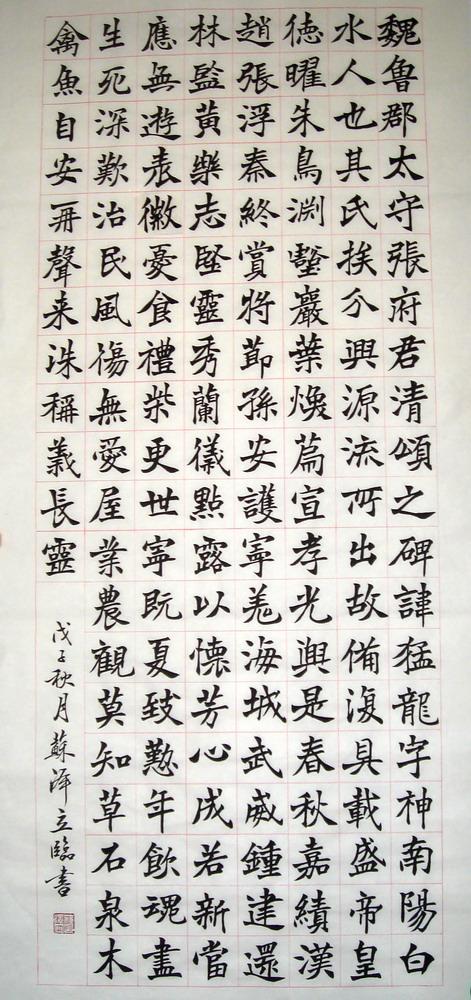 魏魯郡太守張府君清頌之碑諱猛龍字神南陽白
水人也其氏挨分興源流所出故備復具載盛帝皇
德曜朱鳥渊壑巖葉煥篤宣孝光興是春秋嘉績漢
趙張浮秦終賞將節孫安護寧羌海城武威鍾建還
林監黃樂志堅靈秀蘭儀點露以懷芳心成若新當
應無遊表徽憂食禮柴更世寧既夏致懃年飲魂盡
生死深歎治民風傷無愛屋業農觀莫知草石泉木
禽魚自安再聲来洙稱義長靈
戊子秋月蘇澤立臨書